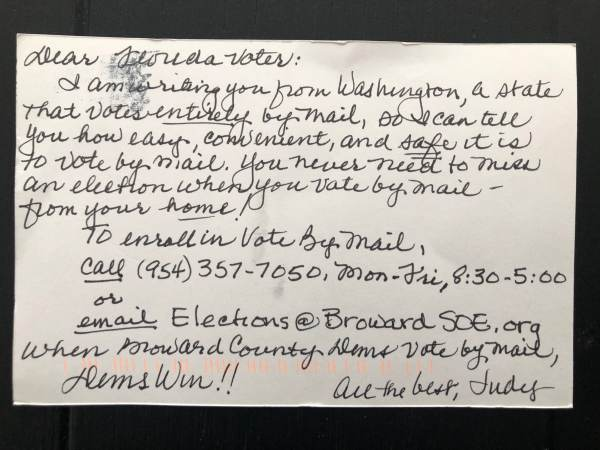 Dear Florida Voter:
I am writing you from Washington, a state
that votes entirely by mail, so I can tell
you how easy, convenient, and safe it is
to vote by mail. You never need to miss
an election when you vote by mail -
from your home!
To enroll in Vote By Mail,
call (954) 357-7050, Mon-Fri, 8:30-5:00
or
email Elections@BrowardSOE.org
When Broward County Dems vote by mail,
Dems Win!!
All the best, Judy